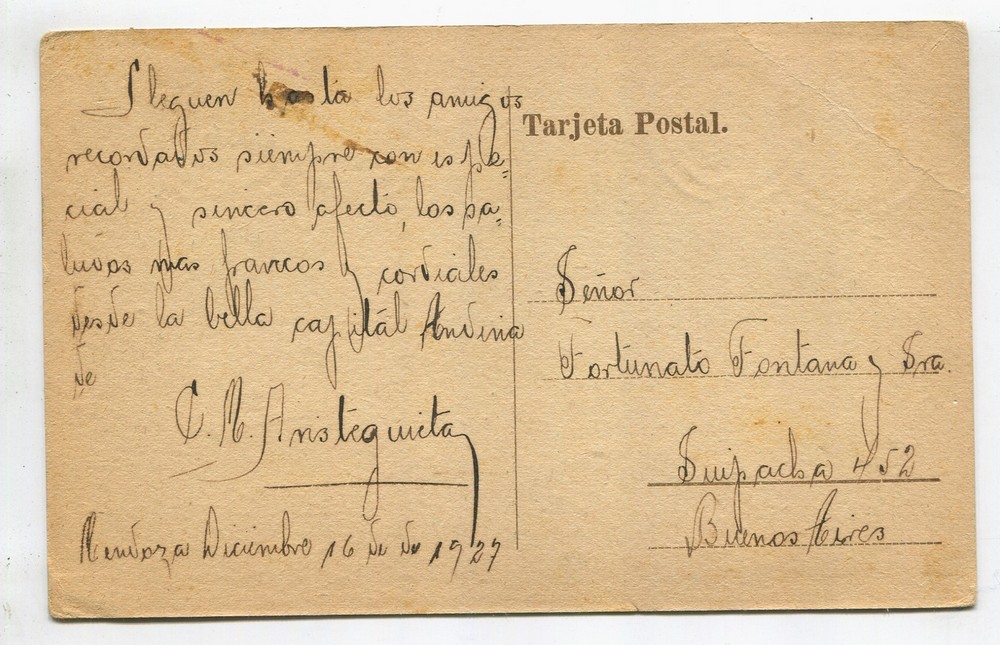 Lleguen hasta los amigos
recordados siempre con espe=
cial y sincero afecto, los sa=
ludos mas francos y cordiales
desde la bella capital Andina
de
C. M. Aristeguieta
Mendoza Diciembre 16 de de 1927
Tarjeta Postal.
Señor
Fortunato Fontana y Sra.
Suipacha 452
Buenos Aires